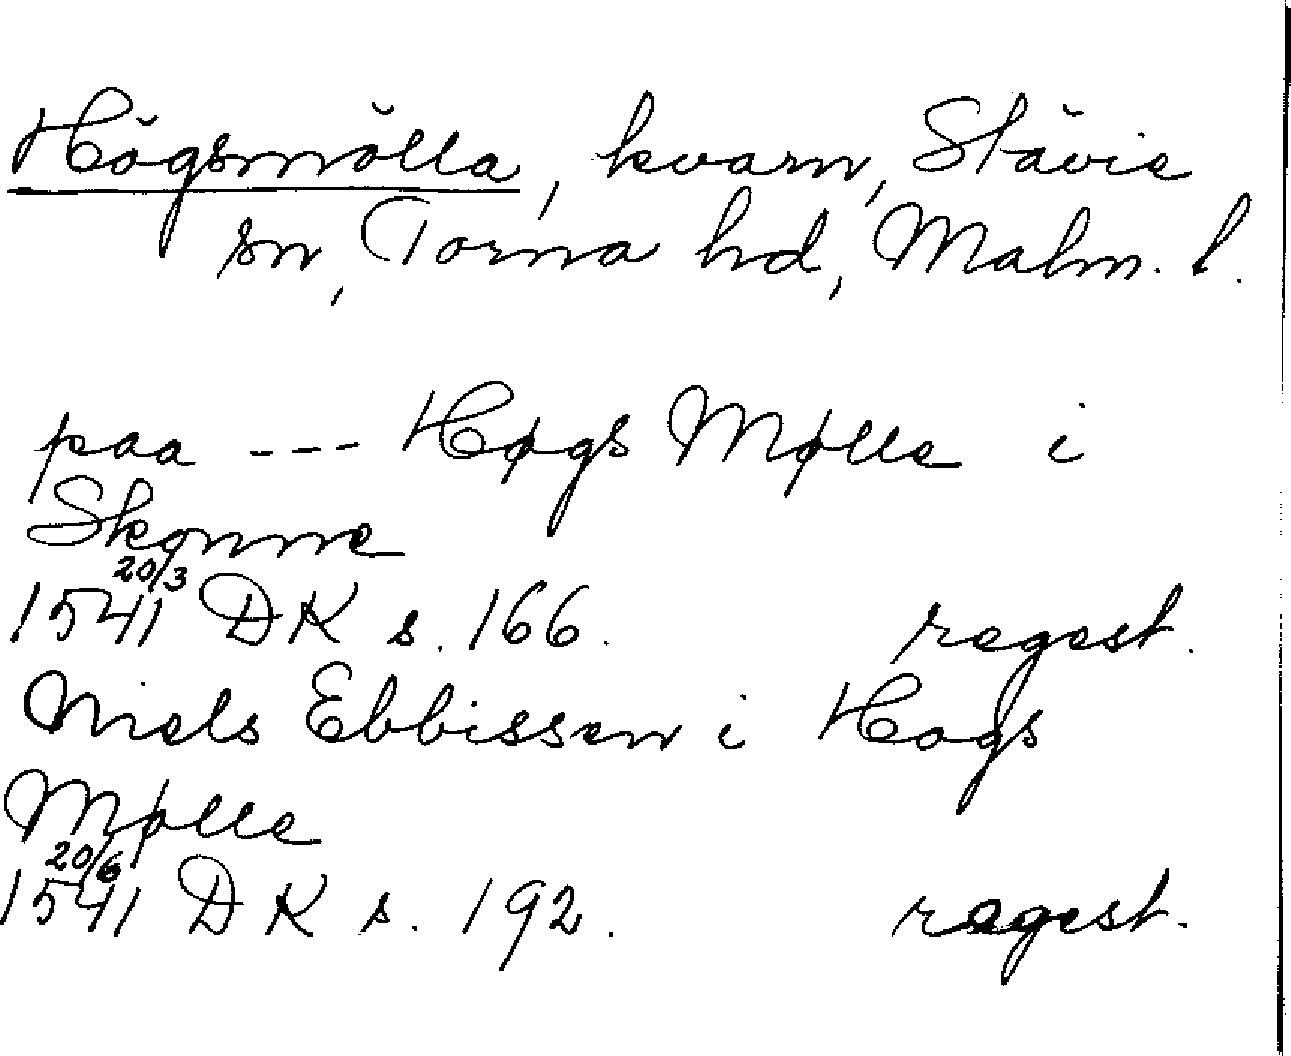 Högsmölla, kvarn, Stävie
sn, Torna hd, Malm. l.
paa --- Høgs Mølle i
Skonne
20/3
1541 DK s. 166. regest.
Niels Ebbissen i Hogs
Mølle
20/6
1541 DK s. 192. regest.